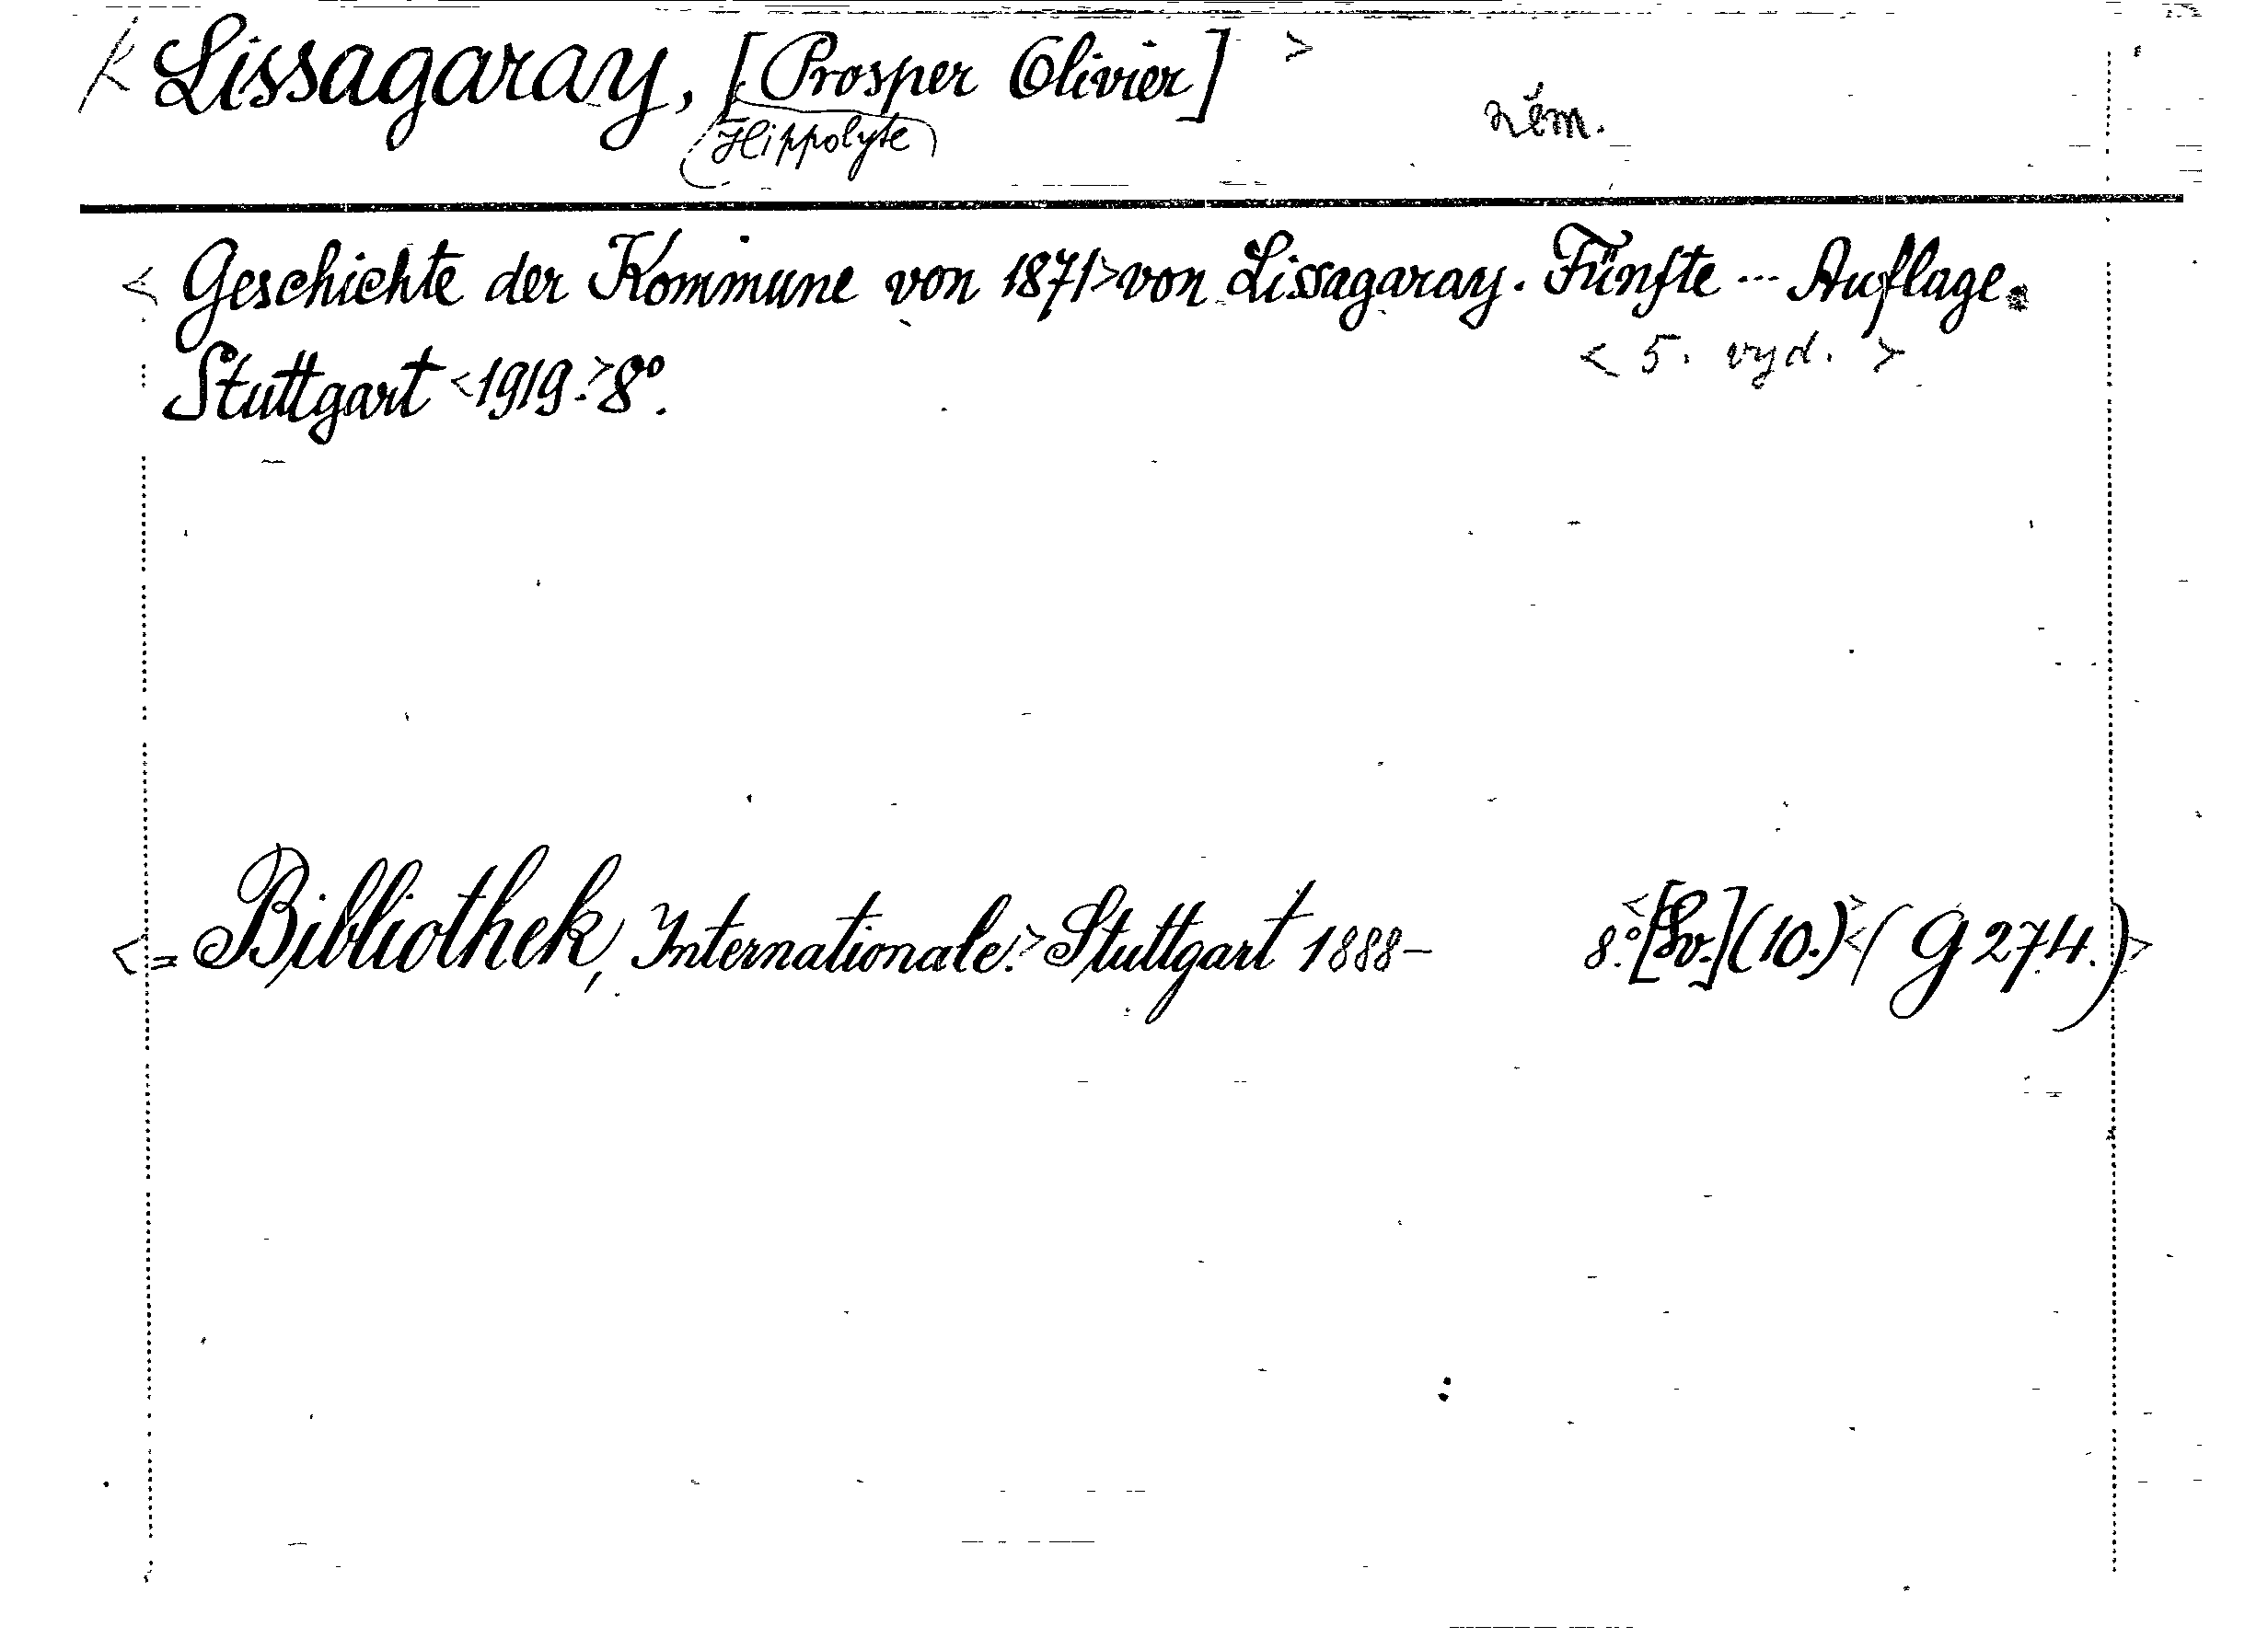 < Lissagaray, [Prosper Olivier] >
Hippolyte
něm.
< Geschichte der Kommune von 1871> von Lissagaray. Fünfte ... Auflage.
< 5. vyd. >
Stuttgart <1919.> 8°.
<= Bibliothek, Internationale.> Stuttgart 1888- 8.° <[Sv.] (10.)> <( G 274.)>